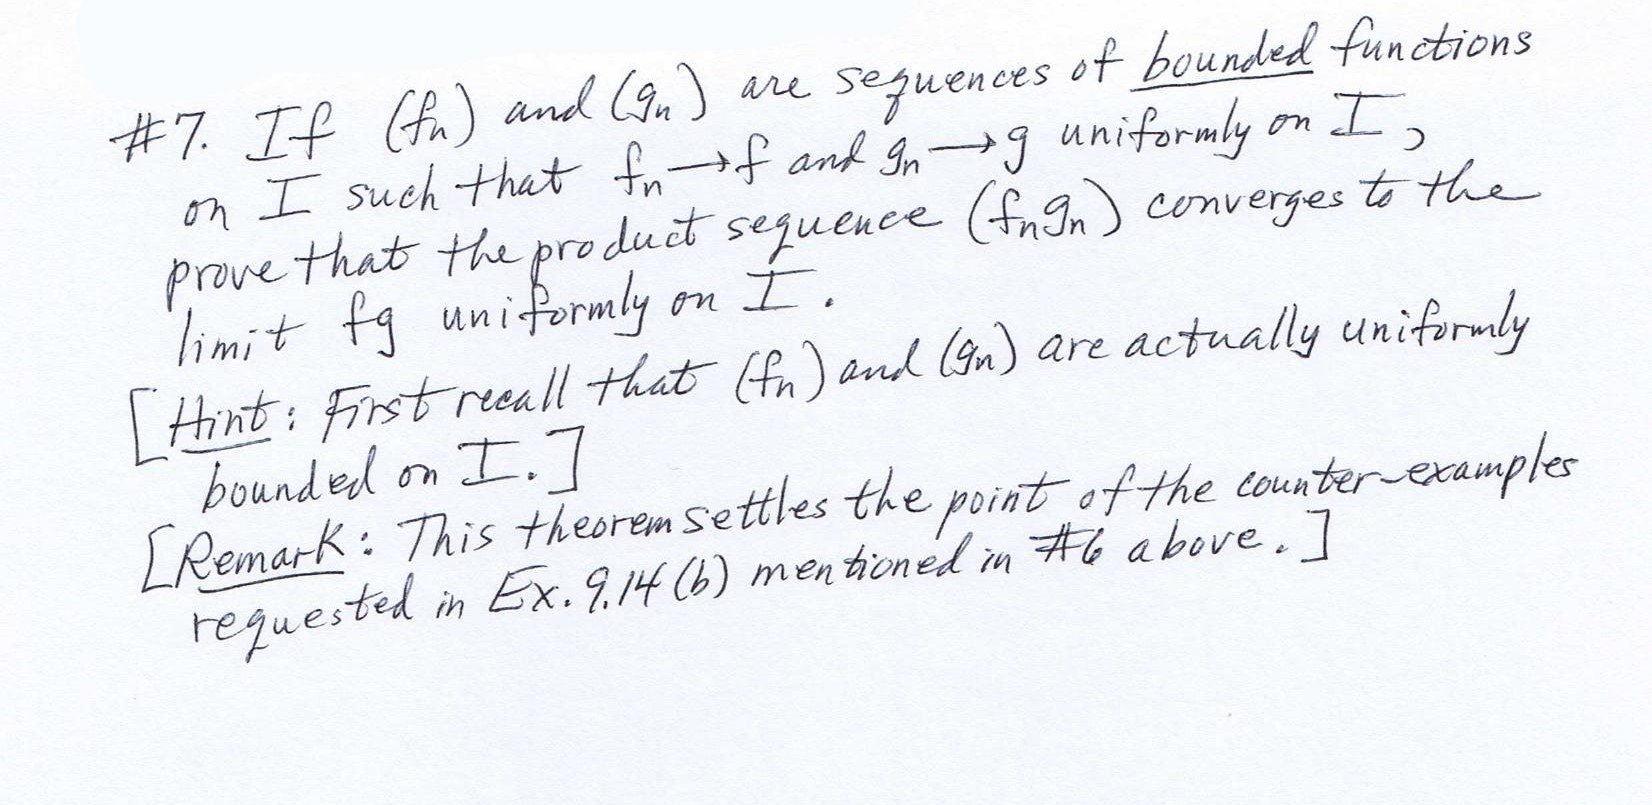 #7. If (fn) and (gn) are sequences of bounded functions
on I such that fn→f and gn→g uniformly on I,
prove that the product sequence (fngn) converges to the
limit fg uniformly on I.
[Hint: First recall that (fn) and (gn) are actually uniformly
bounded on I.]
[Remark: This theorem settles the point of the counter-examples
requested in Ex. 9.14 (b) mentioned in #6 above.]